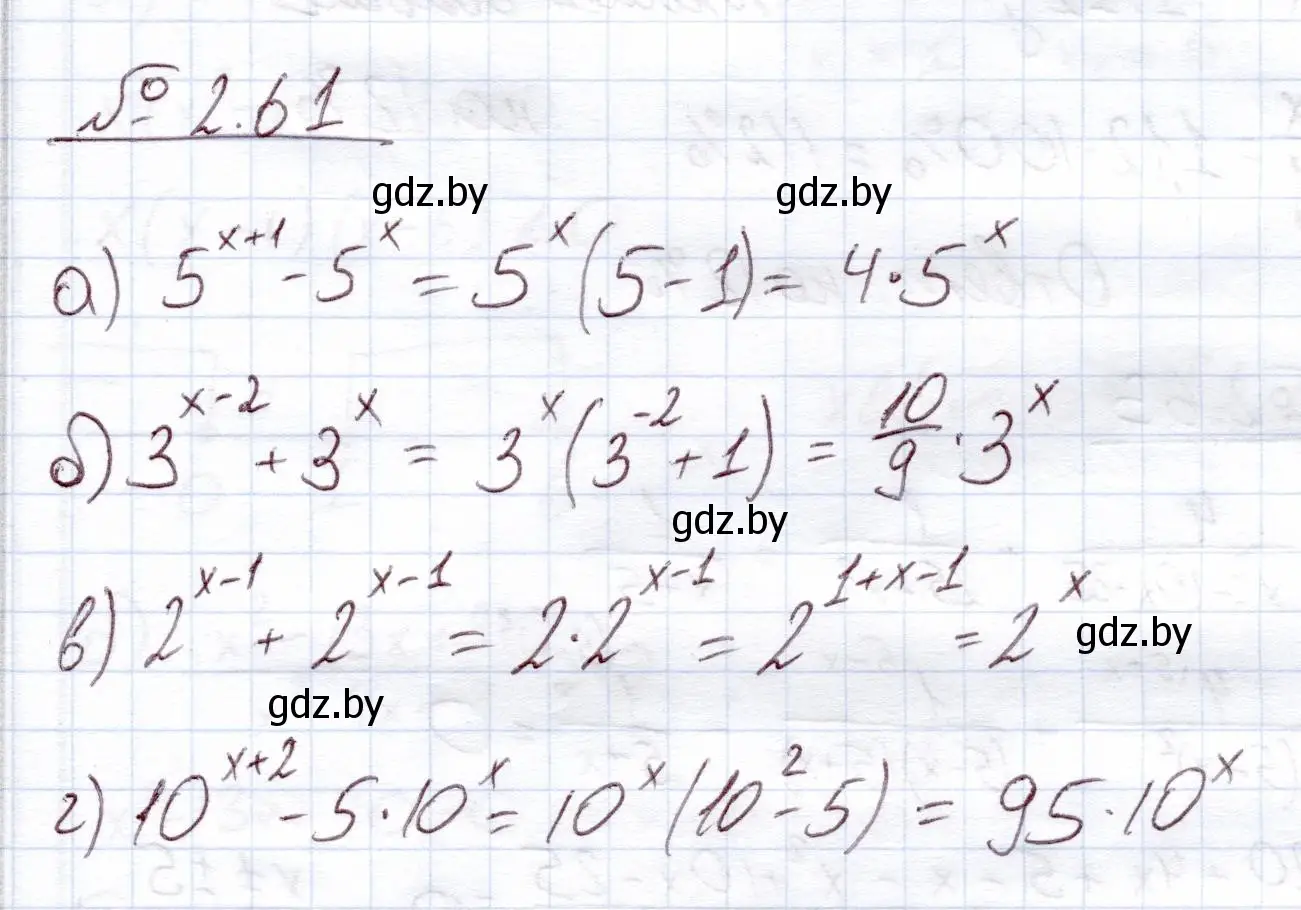 № 2.61
gdz.by gdz.by
а) 5^{x+1} - 5^x = 5^x (5 - 1) = 4 · 5^x
б) 3^{x-2} + 3^x = 3^x (3^{-2} + 1) = \frac{10}{9} · 3^x
gdz.by
в) 2^{x-1} + 2^{x-1} = 2 · 2^{x-1} = 2^{1+x-1} = 2^x
gdz.by
gdz.by
г) 10^{x+2} - 5 · 10^x = 10^x (10^2 - 5) = 95 · 10^x